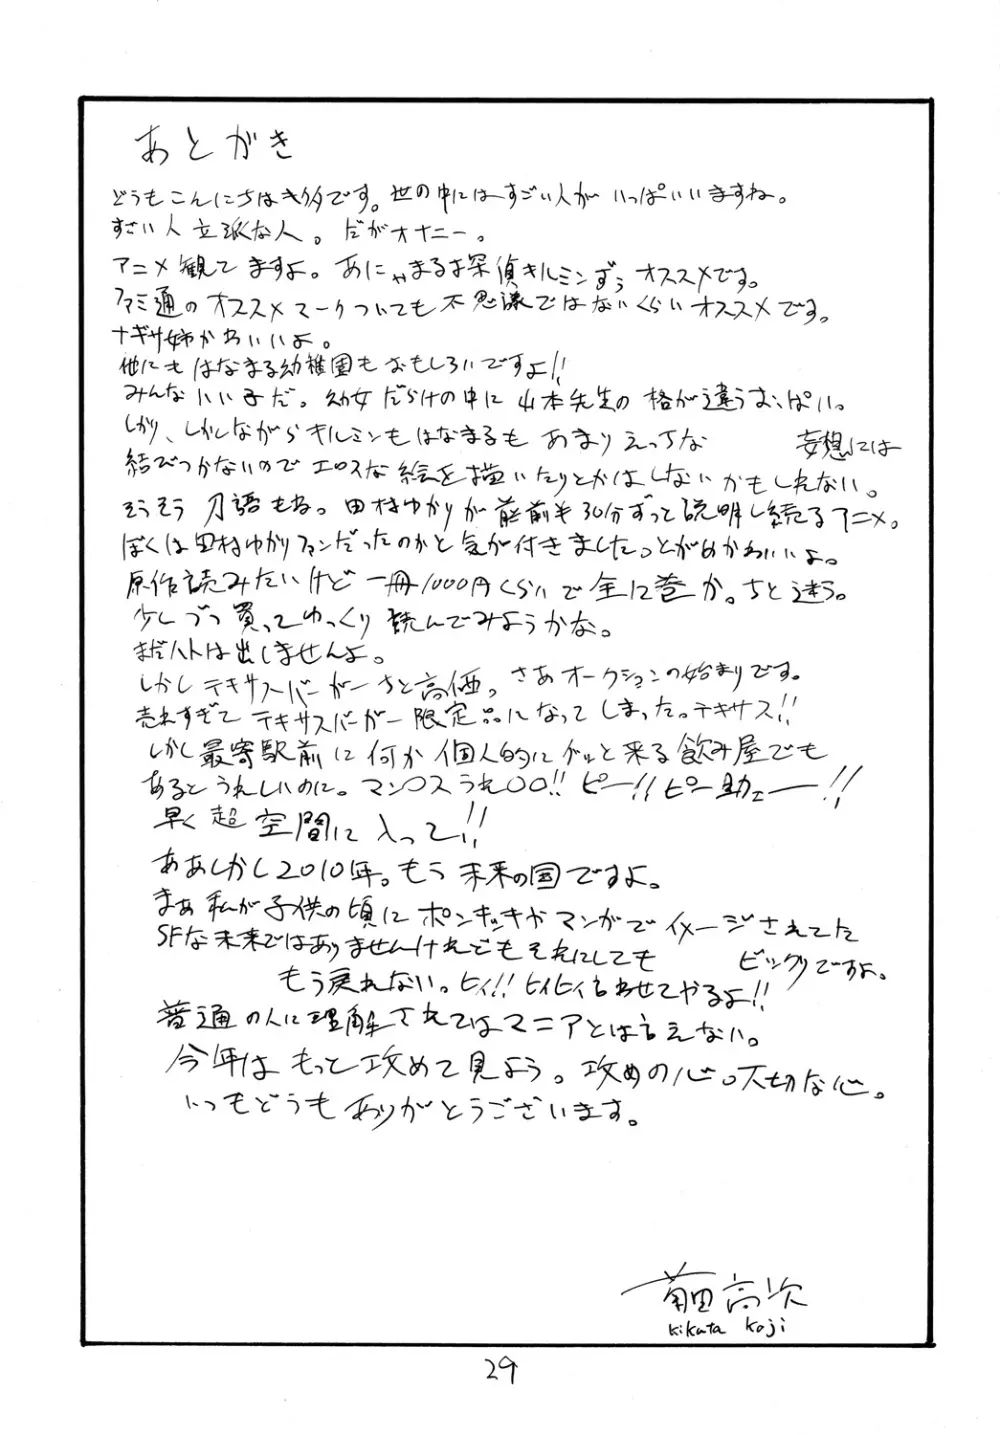 あとがき
どうもこんにちはき多です。世の中にはすごい人がいっぱいいますね。
すごい人立派な人。だがオナニー。
アニメ観てますよ。あにゃまる探偵キルミンずぅオススメです。
ファミ通のオススメマークついても不思議ではないくらいオススメです。
ナギサ姉かわいいよ。
他にもはなまる幼稚園もおもしろいですよ!!
みんないい子だ。幼女だらけの中に山本先生の格が違うおっぱい。
しかし、しかしながらキルミンもはなまるもあまりえっちな 妄想には
結びつかないのでエロスな絵を描いたりとかはしないかもしれない。
そうそう刀語もね。田村ゆかりが前半30分ずっと説明し続けるアニメ。
ぼくは田村ゆかりファンだったのかと気が付きました。とがめかわいいよ。
原作読みたいけど一冊1000円くらいで全12巻か。ちと迷う。
少しづつ買ってゆっくり読んでみようかな。
まだハトは出しませんよ。
しかしテキサスバーガーちと高価。さあオークションの始まりです。
売れすぎてテキサスバーガー限定品になってしまった。テキサス!!
しかし最寄駅前に何か個人的にグッと来る飲み屋でも
あるとうれしいのに。マン〇スうれ〇〇!!ピー!!ピー助ェー!!
早く超空間に入って!!
ああしかし2010年。もう未来の国ですよ。
まあ私が子供の頃にポンキッキやマンガでイメージされてた
SFな未来ではありませんけれどもそれにしても ビックリですよ。
もう戻れない。ヒィ!!ヒィヒィ言わせてやるよ!!
普通の人に理解されてはマニアとは言えない。
今年はもっと攻めて見よう。攻めの心。大切な心。
いつもどうもありがとうございます。
菊田高次
Kikuta Koji
29